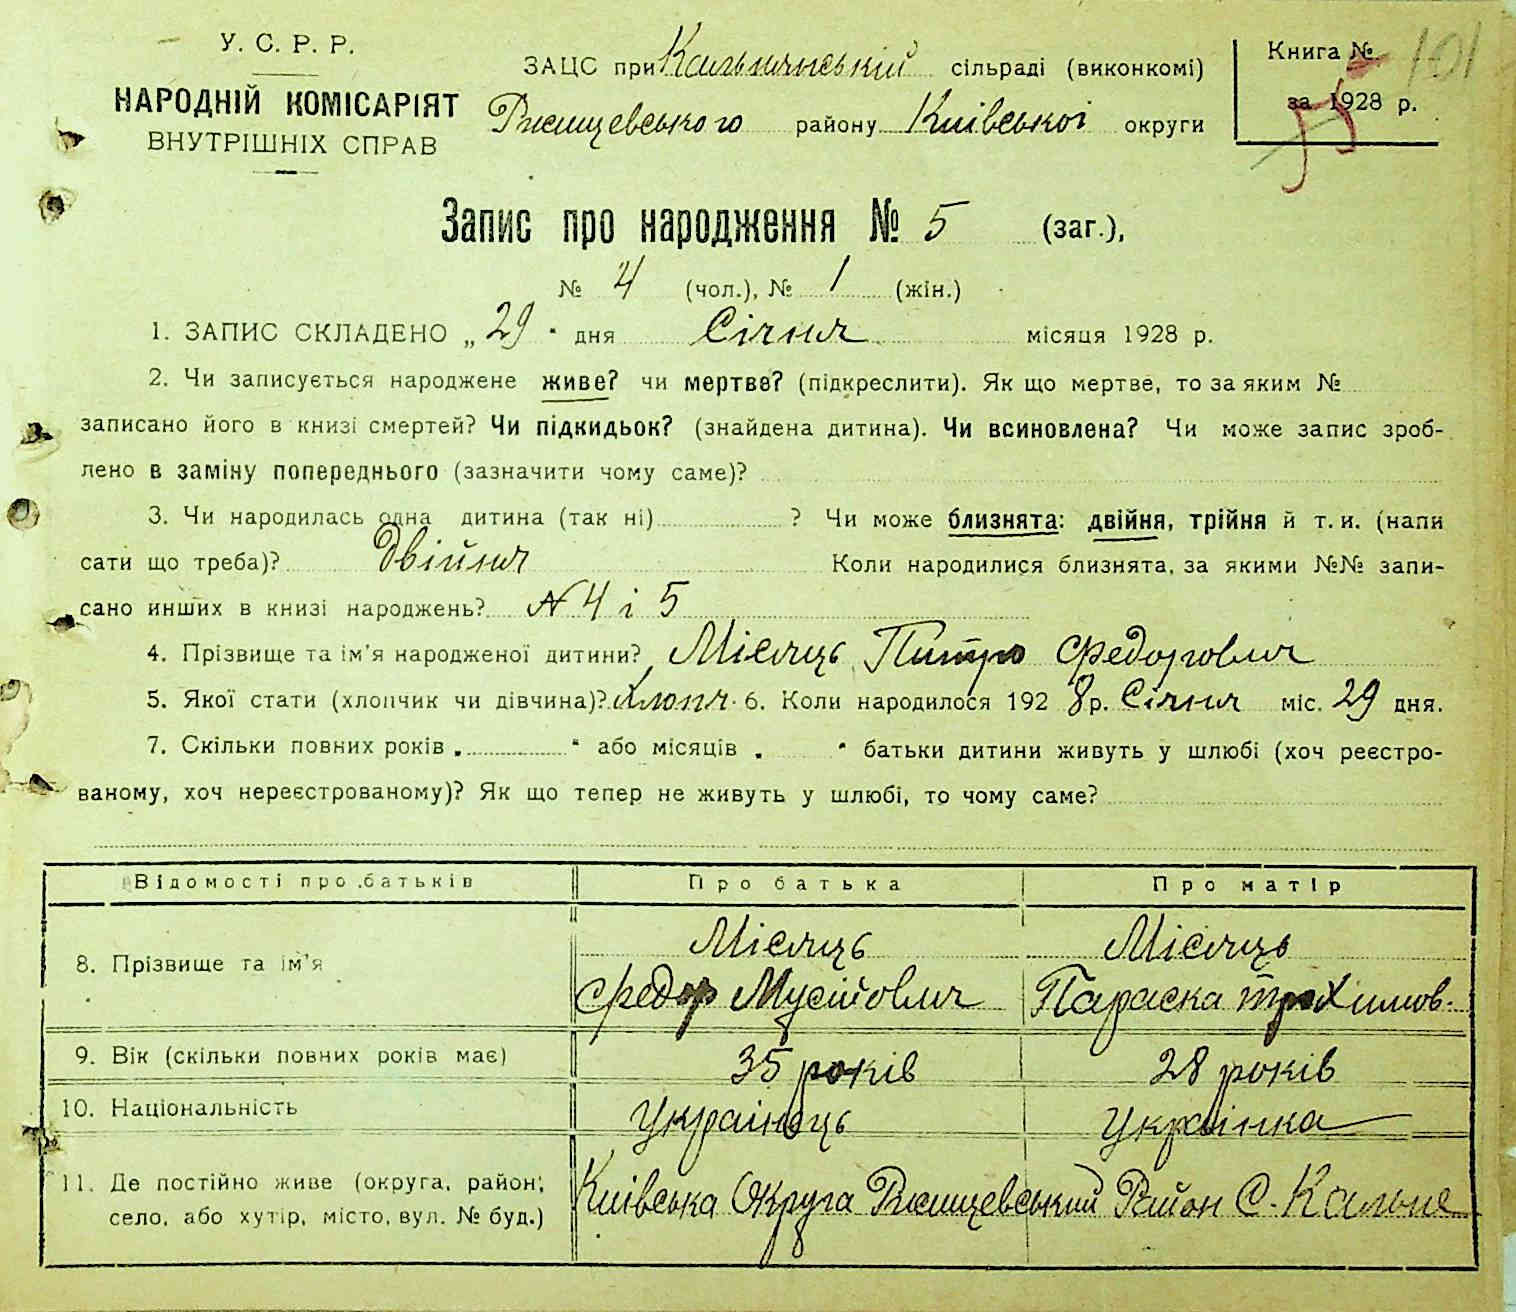 У. С. Р. Р.
НАРОДНІЙ КОМІСАРІЯТ
ВНУТРІШНІХ СПРАВ
ЗАЦС при Кальнянській сільраді (виконкомі)
Ржищевського району Київської округи
Книга № 101
за 1928 р.
Запис про народження № 5 (заг.),
№ 4 (чол.), № 1 (жін.)
1. ЗАПИС СКЛАДЕНО „29" дня Січня місяця 1928 р.
2. Чи записується народжене живе? чи мертве? (підкреслити). Як що мертве, то за яким №
записано його в книзі смертей? Чи підкидьок? (знайдена дитина). Чи всиновлена? Чи може запис зроб-
лено в заміну попереднього (зазначити чому саме)?
3. Чи народилась одна дитина (так ні) ? Чи може близнята: двійня, трійня й т. и. (напи
сати що треба)? Двійня Коли народилися близнята, за якими №№ запи-
сано инших в книзі народжень? № 4 і 5
4. Прізвище та ім'я народженої дитини? Місяць Питро Федорович
5. Якої стати (хлопчик чи дівчина)? Хлопч. 6. Коли народилося 1928 р. Січня міс. 29 дня.
7. Скільки повних років „ " або місяців „ " батьки дитини живуть у шлюбі (хоч реєстро-
ваному, хоч нереєстрованому)? Як що тепер не живуть у шлюбі, то чому саме?
Відомості про батьків Про батька Про матір
8. Прізвище та ім'я Місяць Місяць
Федор Мусійович Параска Трохимов.
9. Вік (скільки повних років має) 35 років 28 років
10. Національність Українець Українка
11. Де постійно живе (округа, район, Київська Округа Ржищевський Район С. Кальне
село, або хутір, місто, вул. № буд.)